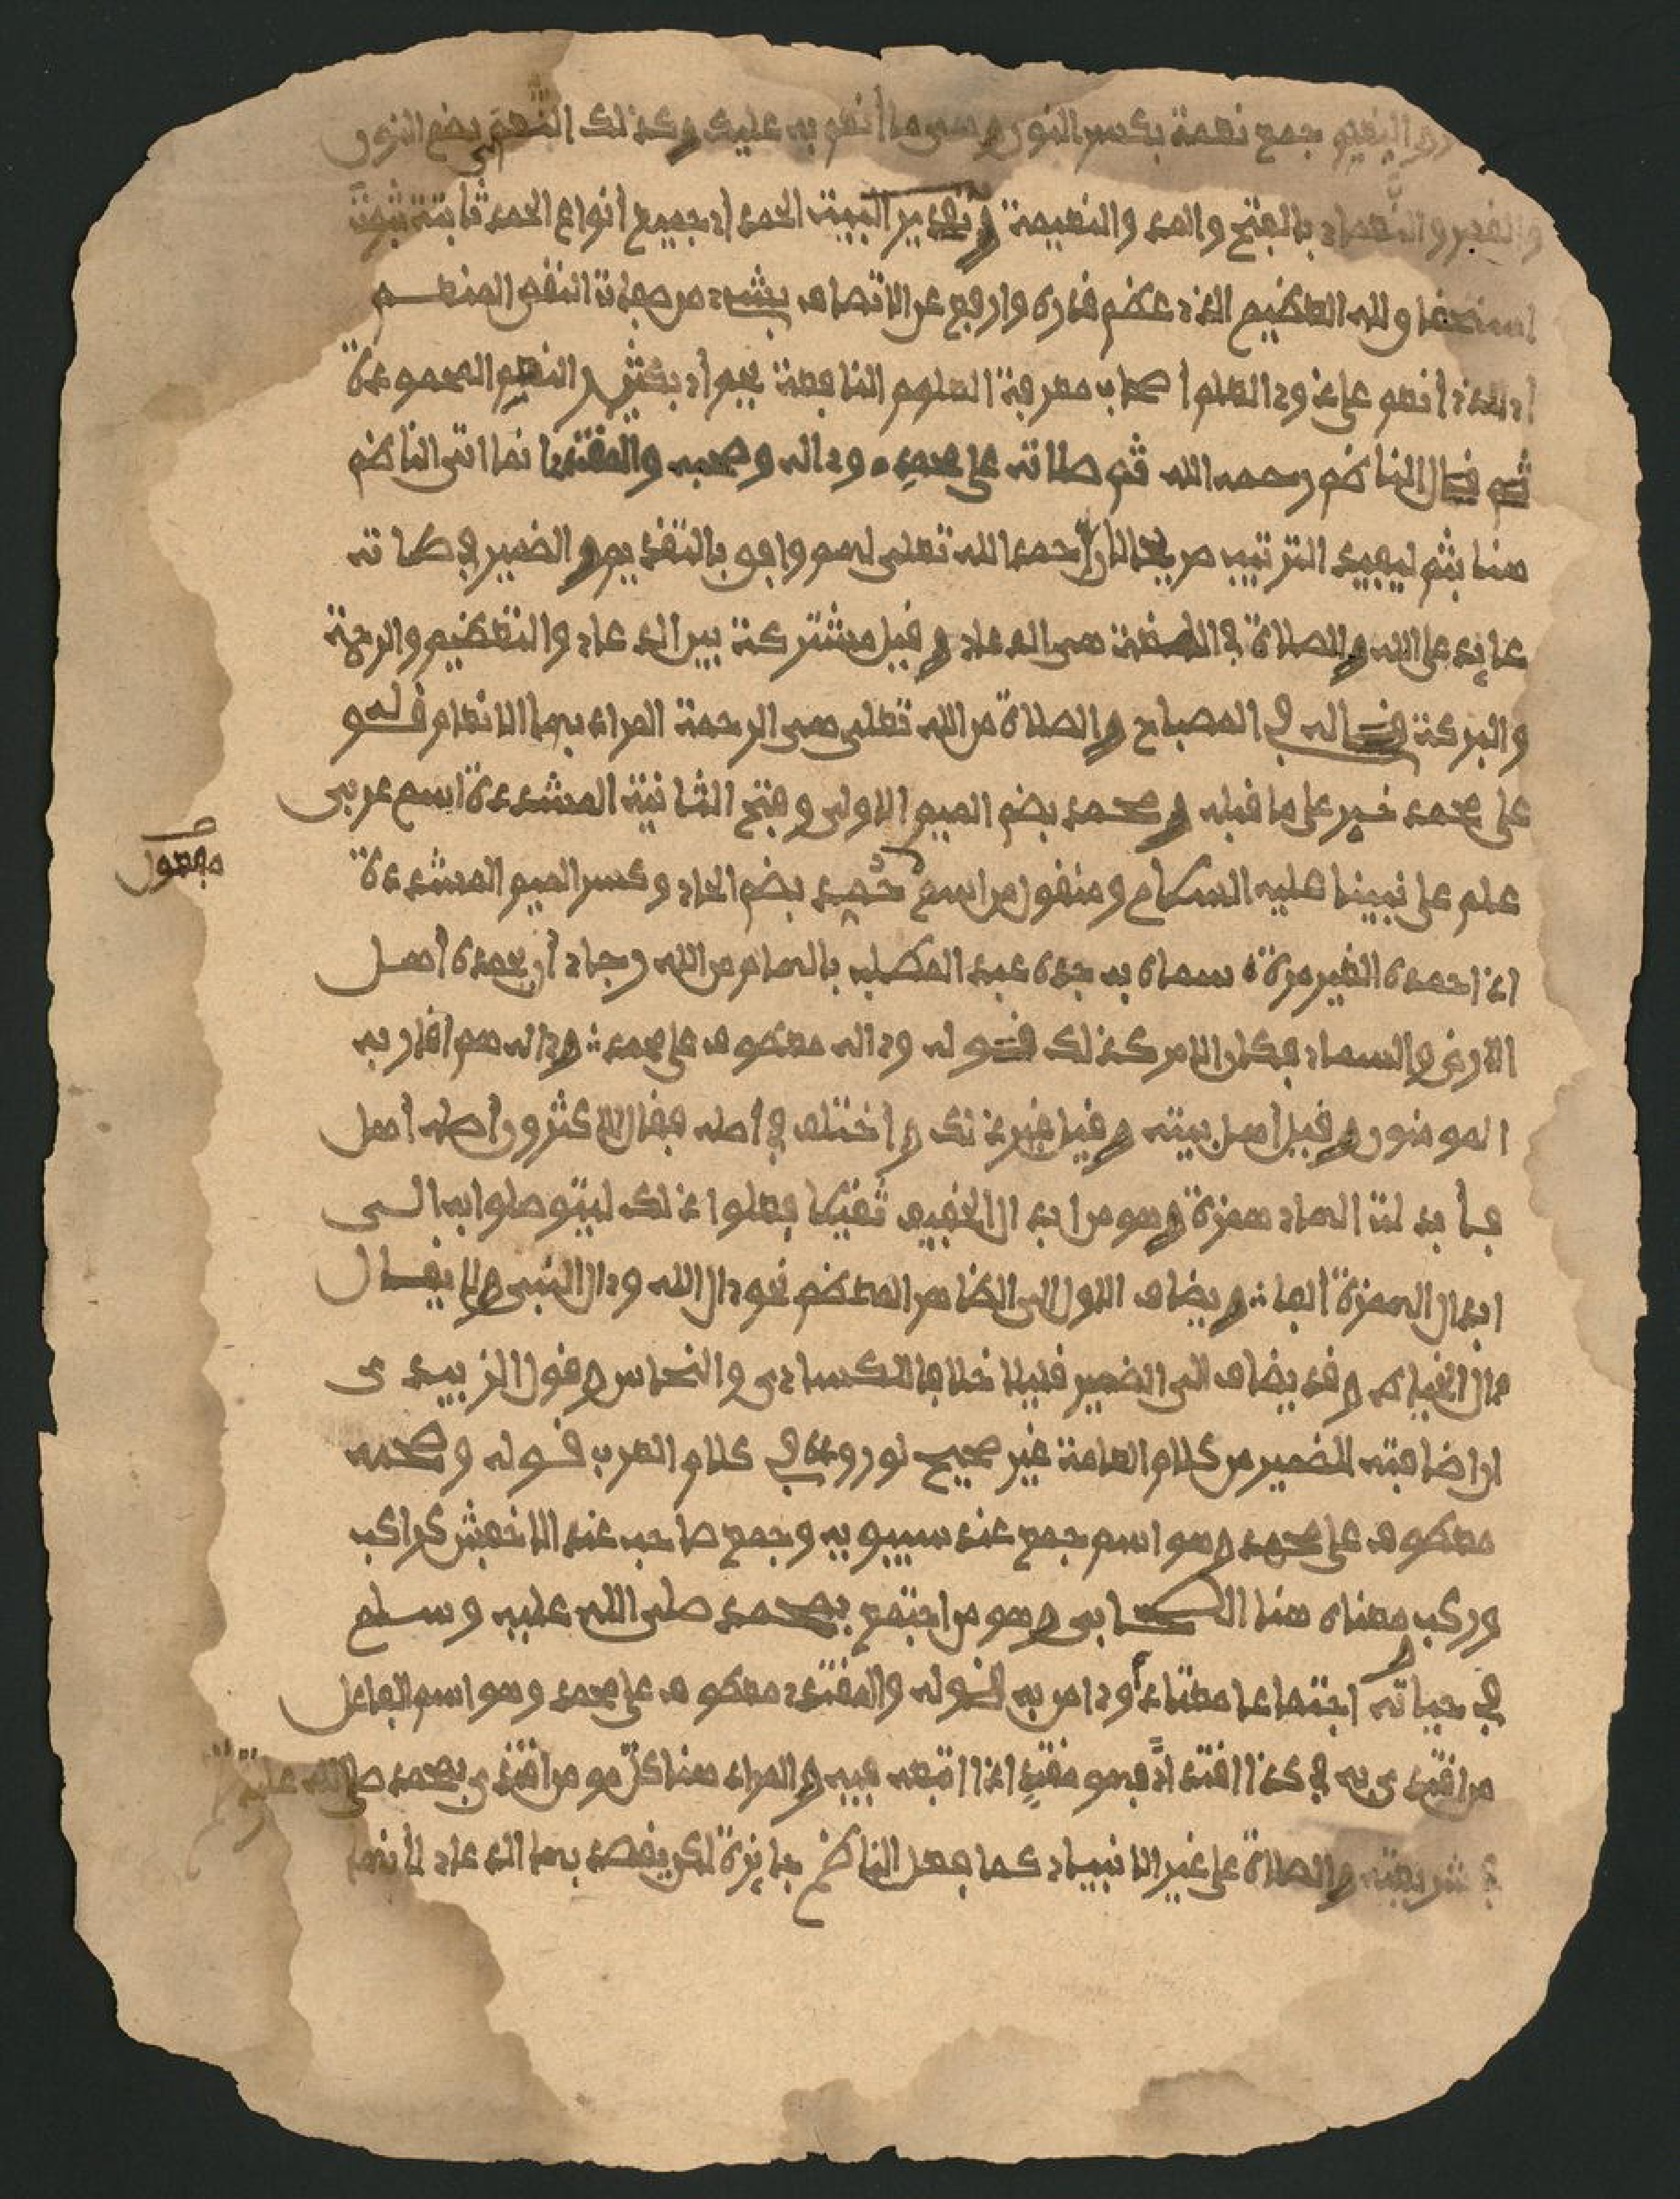 والنعيم جمع نعمة بكسر النون وهي ما أنعم به عليك وكذلك النعمى بضم النون
والقصر والنعماء بالفتح والمد والنعيمة وتقدير البيت الحمد أي جميع أنواع الحمد ثابتة ثبوت
ولله العظيم الذي عظم قدره وارفع عن الاتصاف بشيء من صفات النقص المنعم
أي الذي أنعم على ذوي العلم أصحاب معرفة العلوم النافعة بكثير النعم المحمودة
ثم قال الناظم رحمه الله ثم صلاته على محمد وءاله وصحبه والمقتدى انما اتى الناظم
هنا بثم ليفيد الترتيب حمد الله تعلى لهو وافو بالتقديم والضمير في صلاته
عائد على الله والصلاة في اللغة هي الدعاء وقيل مشتركة بين الدعاء والتعظيم والرحمة
والبركة قاله في المصباح والصلاة من الله تعلى هي الرحمة المراد بها الانعام قوله
على محمد خبر على ما قبله ومحمد بضم الميم الاولى وفتح الثانية المشددة اسم عربي
علم على نبينا عليه السلام ومنقول من اسم حمد بضم الحاء وكسر الميم المشددة
مفعول
اذا حمده الغير مرة سماه به جده عبد المطلب بالهام من الله رجاء أن يحمده أهل
الارض والسماء فكان الامر كذلك قوله وءاله معطوف على محمد وءاله هم اقاربه
المومنون وقيل أهل بيته وقيل غير ذلك واختلف في أصله فقال الاكثرون أصله أهل
فأبدلت الهاء همزة وهو من ابدال الخفيف ثقيلا فعلوا ذلك ليتوصلوا به الى
ابدال الهمزة ألفا ويضاف الاول الى الظاهر المعظم نحو ءال الله وءال النبي ولا يقال
ءال الخياط وقد يضاف الى الضمير قليلا خلافا للكساءي والنحاس وقول الزبيدي
ان اضافته للضمير من كلام العامة غير صحيح لوروده في كلام العرب قوله وصحبه
معطوف على محمد وهو اسم جمع عند سيبويه وجمع صاحب عند الاخفش كراكب
وركب معناه هنا الصحابي وهو من اجتمع بمحمد صلى الله عليه وسلم
في حياته اجتماعا معتادا وءامن به قوله والمقتدي معطوف على محمد وهو اسم الفاعل
من اقتدى به في كذا اقتداء فهو مقتد اذا اتبعه فيه والمراد هنا كل مومن اقتدى بمحمد صلى الله عليه
شريعته والصلاة على غير الانبياء كما فعل الناظم جائزة لكن يقصد بها الدعاء لأنها